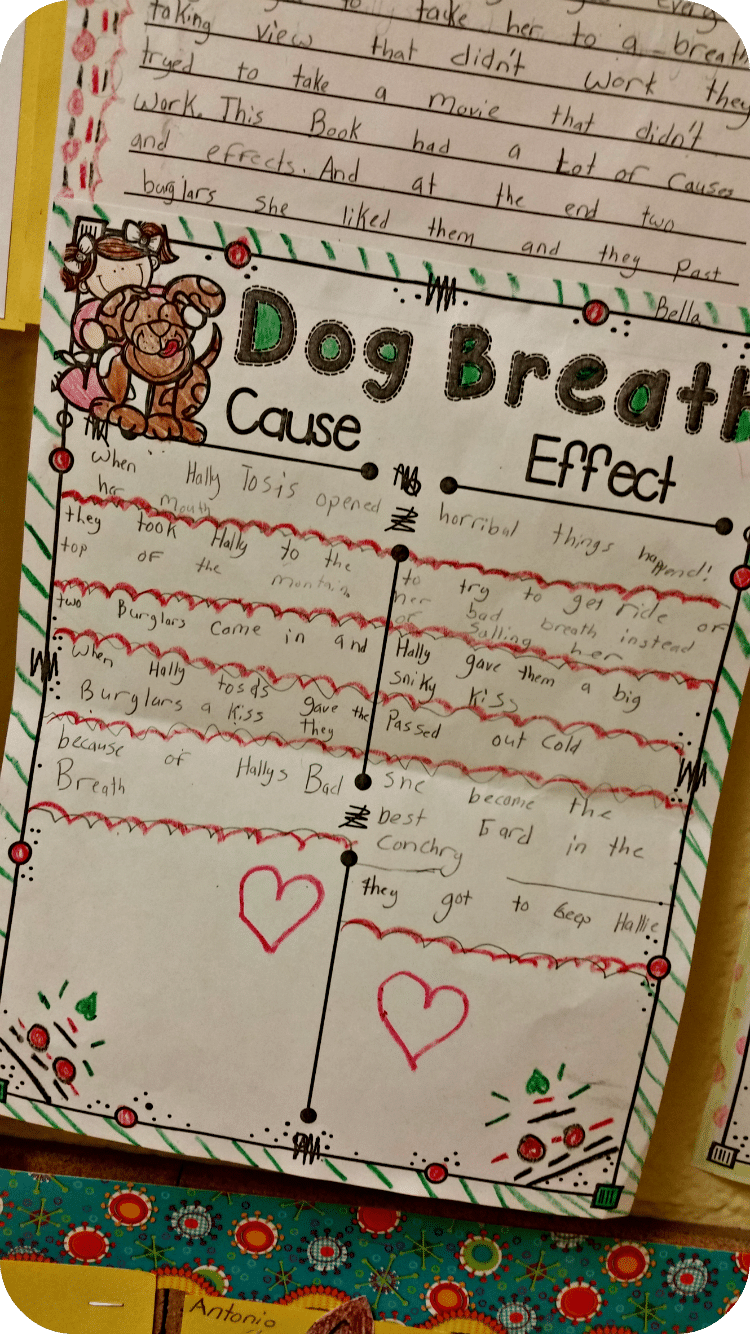 to take her to a breath
taking view that didn't work they
tryed to take a movie that didn't
work. This Book had a Lot of Causes
and effects. And at the end two
burglars she liked them and they Past
Bella
Dog Breath
Cause
Effect
When Hally Tosis opened
her mouth
horribal things happend!
they took Hally to the
top of the montain
to try to get ride of
her bad breath instead
of Salling her
two Burglars come in and
Hally gave them a big
sniky kiss
When Hally tosis gave the
Burglars a kiss they
Passed out cold
because of Hallys Bad
Breath
she become the
best Gard in the
Conchry
they got to keep Hallie
Antonio